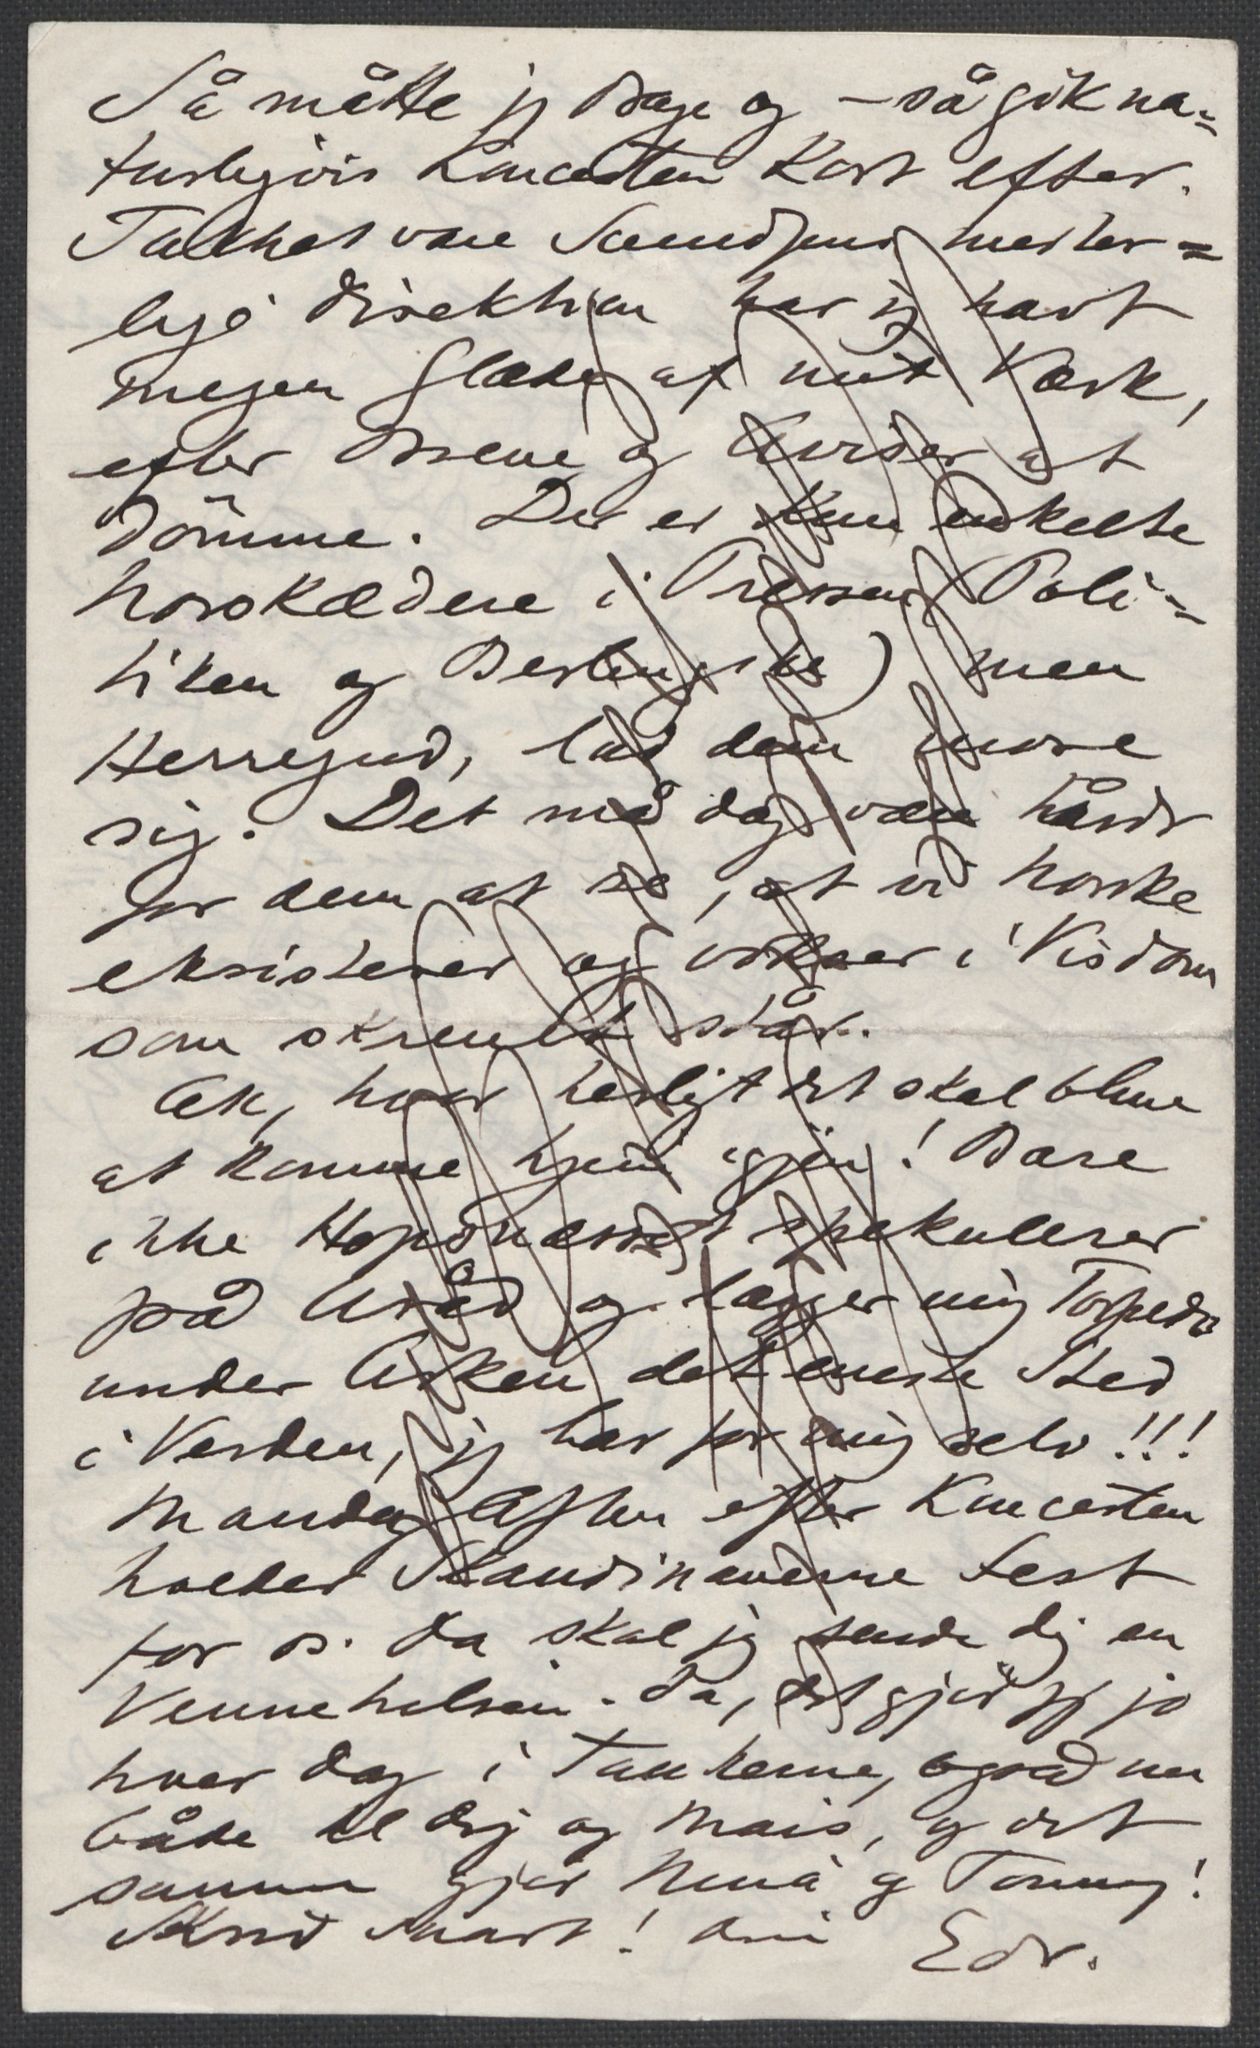 Så måtte jeg Dage og – så gik na=
turligvis Concerten Kort efter.
Takket være Svendsens mester=
lige Direktion har jeg havt
megen Glæde af mit Værk,
efter Ørene og Aviser at
dömme. Der er kun enkelte
norskædere i Pressen (Poli=
tiken og Berlingske) men
Herregud, lad dem more
sig. Det må dog være hårdt
for dem at se, at vi norske
eksisterer og vokser i Visdom
som skrevet står.
Ak, hvor herligt det skal blive
at komme hjem igjen! Bare
ikke Hopsnæsset spekulerer
på Uråd og lægger mig Torpedo
under Asken det eneste Sted
i Verden, jeg har for mig selv!!!
Mandag Aften efter Koncerten
holder Skandinaverne Fest
for os. Da skal jeg sende dig en
Vennehilsen. Ja, det gjør jeg jo
hver Dag i Tankerne, også nu
både til dig og Mais, og det
samme gjør Nina og Tonny!
Skriv snart! Din Edv.